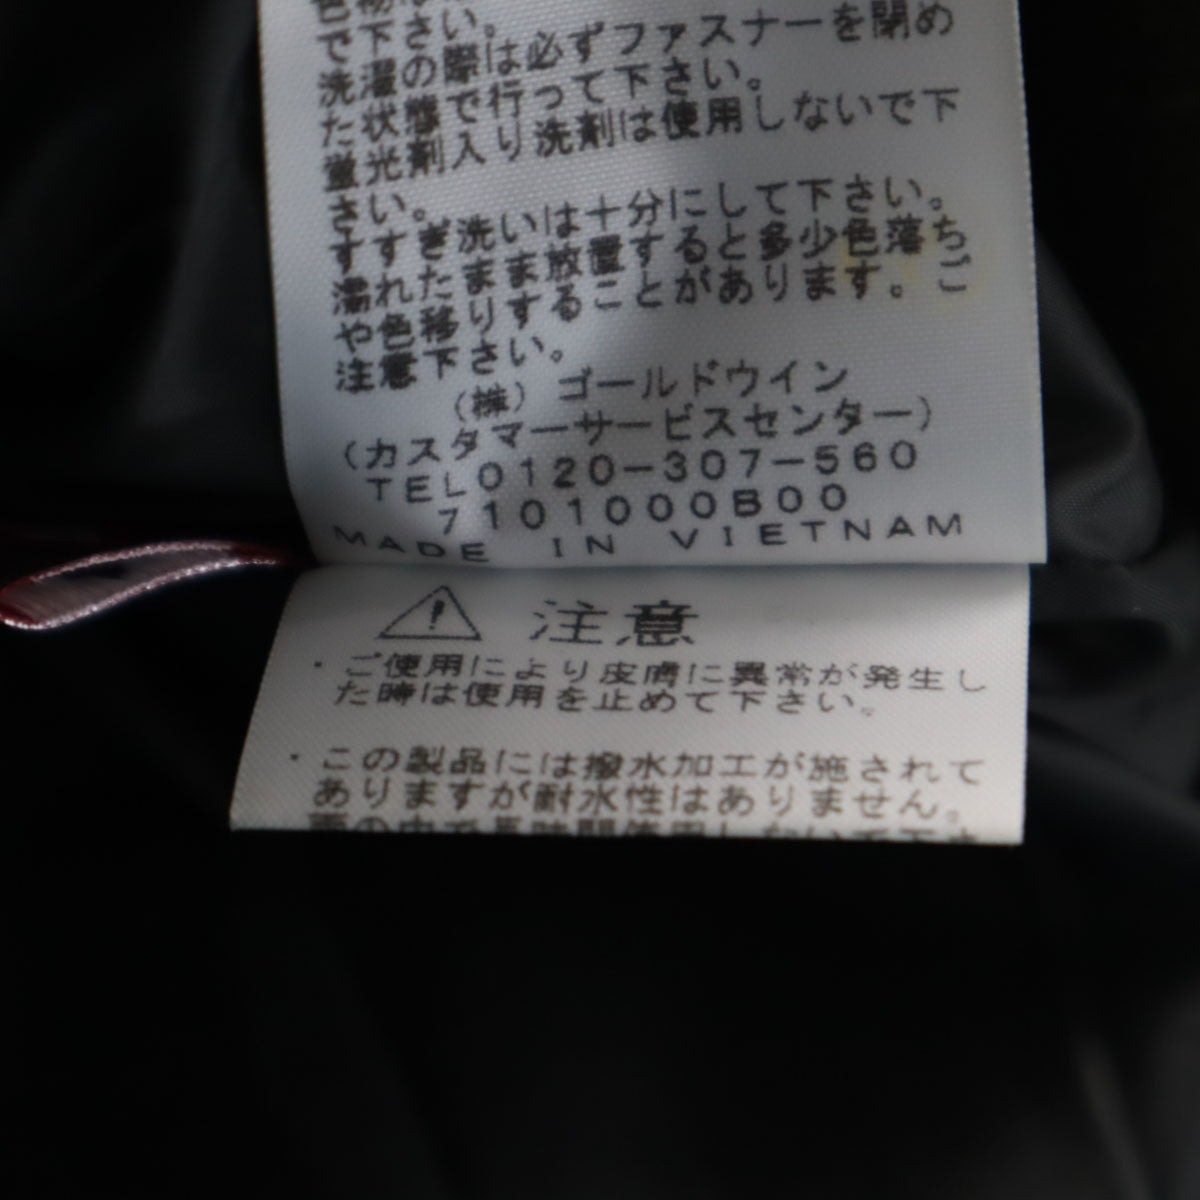 で下さい。
洗濯の際は必ずファスナーを閉め
た状態で行って下さい。
蛍光剤入り洗剤は使用しないで下
さい。
すすぎ洗いは十分にして下さい。
濡れたまま放置すると多少色落ち
や色移りすることがあります。ご
注意下さい。
(株)ゴールドウイン
(カスタマーサービスセンター)
TEL0120-307-560
7101000B00
MADE IN VIETNAM
注意
・ご使用により皮膚に異常が発生し
た時は使用を止めて下さい。
・この製品には撥水加工が施されて
ありますが耐水性はありません。
雨の中で長時間使用しないで下さ